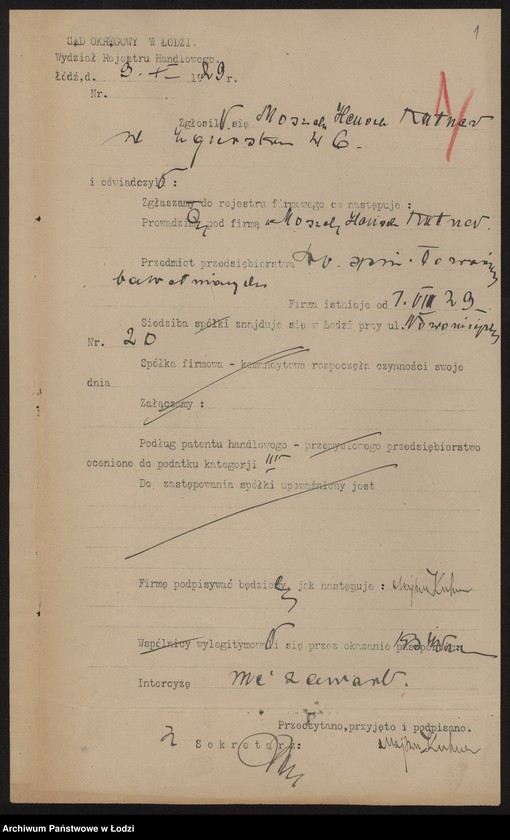 1
SĄD OKRĘGOWY W ŁODZI.
Wydział Rejestru Handlowego.
Łódź, d. 3. 1929 r.
Nr.
Zgłosił się Moszek Henoch Kutner
46.
i oświadczył :
Zgłaszam do rejestru firmowego co następuje :
Prowadzi pod firmą "Moszek Henoch Kutner.
Przedmiot przedsiębiorstwa towarów
bawełnianych
Firma istnieje od 1. VIII 29
Siedziba spółki znajduje się w Łodzi przy ul. Nowomiejskiej
Nr. 20
Spółka firmowa - komandytowa rozpoczęła czynności swoje
dnia
Załączamy :
Podług patentu handlowego - przemysłowego przedsiębiorstwo
ocenione do podatku kategorji III
Do zastępowania spółki upoważniony jest
Firmę podpisywać będzie jak następuje :
Wspólnicy wylegitymował się przez okazanie
Intercyzę nie zawarł.
Przeczytano, przyjęto i podpisano.
Sekretarz:
Archiwum Państwowe w Łodzi